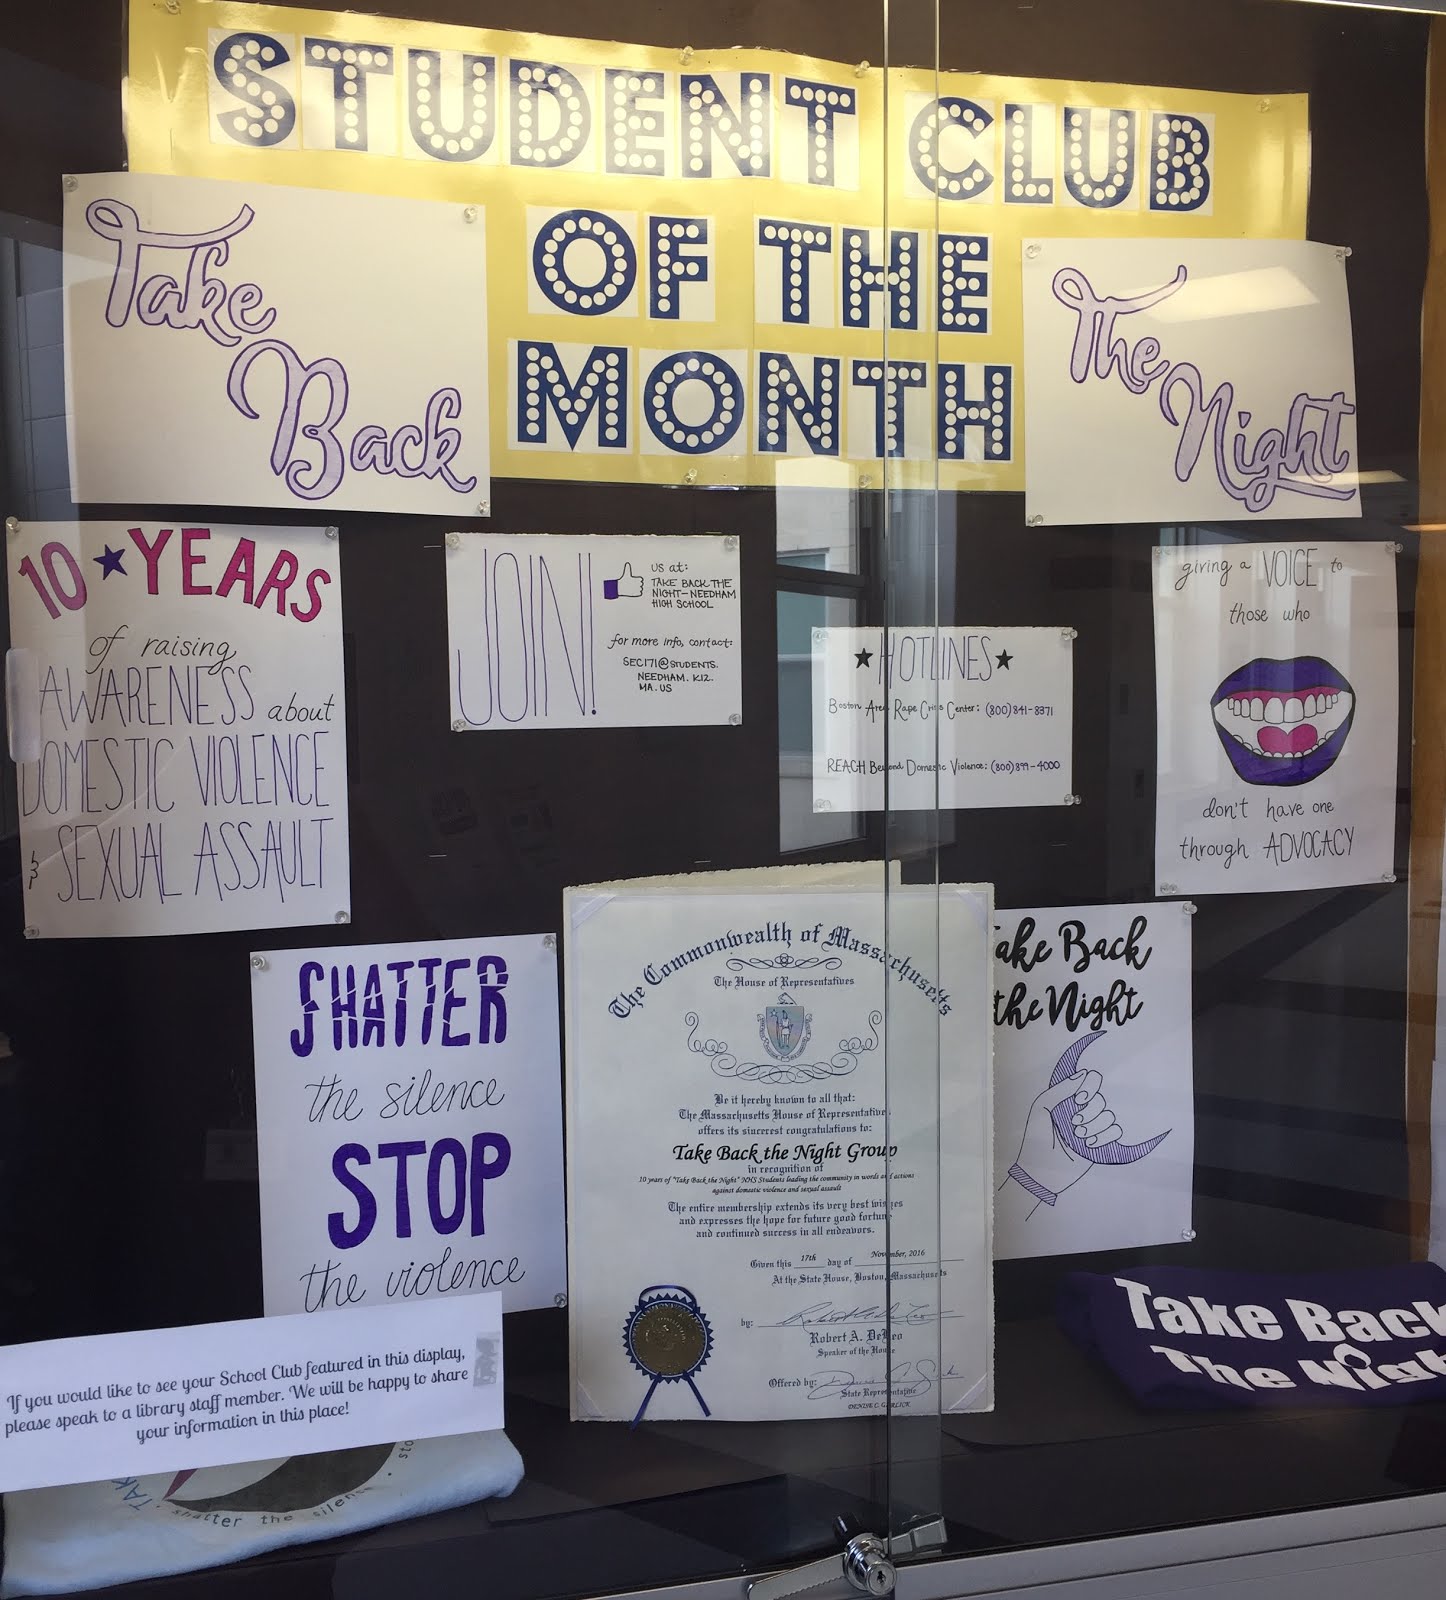 STUDENT CLUB
OF THE
MONTH
Take
Back
The
Night
10 ★ YEARS
of raising
AWARENESS about
DOMESTIC VIOLENCE
& SEXUAL ASSAULT
JOIN!
US at:
TAKE BACK THE
NIGHT-NEEDHAM
HIGH SCHOOL
for more info, contact:
SEC171@STUDENTS.
NEEDHAM.K12.
MA.US
★HOTLINES★
Boston Area Rape Crisis Center: (800)841-8371
REACH Beyond Domestic Violence: (800)899-4000
giving a VOICE to
those who
don't have one
through ADVOCACY
SHATTER
the silence
STOP
the violence
The Commonwealth of Massachusetts
The House of Representatives
Be it hereby known to all that:
The Massachusetts House of Representatives
offers its sincerest congratulations to:
Take Back the Night Group
in recognition of
10 years of "Take Back the Night" NHS Students leading the community in words and actions
against domestic violence and sexual assault
The entire membership extends its very best wishes
and expresses the hope for future good fortune
and continued success in all endeavors.
Given this 17th day of November, 2016
At the State House, Boston, Massachusetts
by:
Robert A. DeLeo
Speaker of the House
Offered by:
State Representative
DENISE C. GARLICK
Take Back
the Night
If you would like to see your School Club featured in this display,
please speak to a library staff member. We will be happy to share
your information in this place!
TAK
· shatter the silence · sto
Take Back
The Night